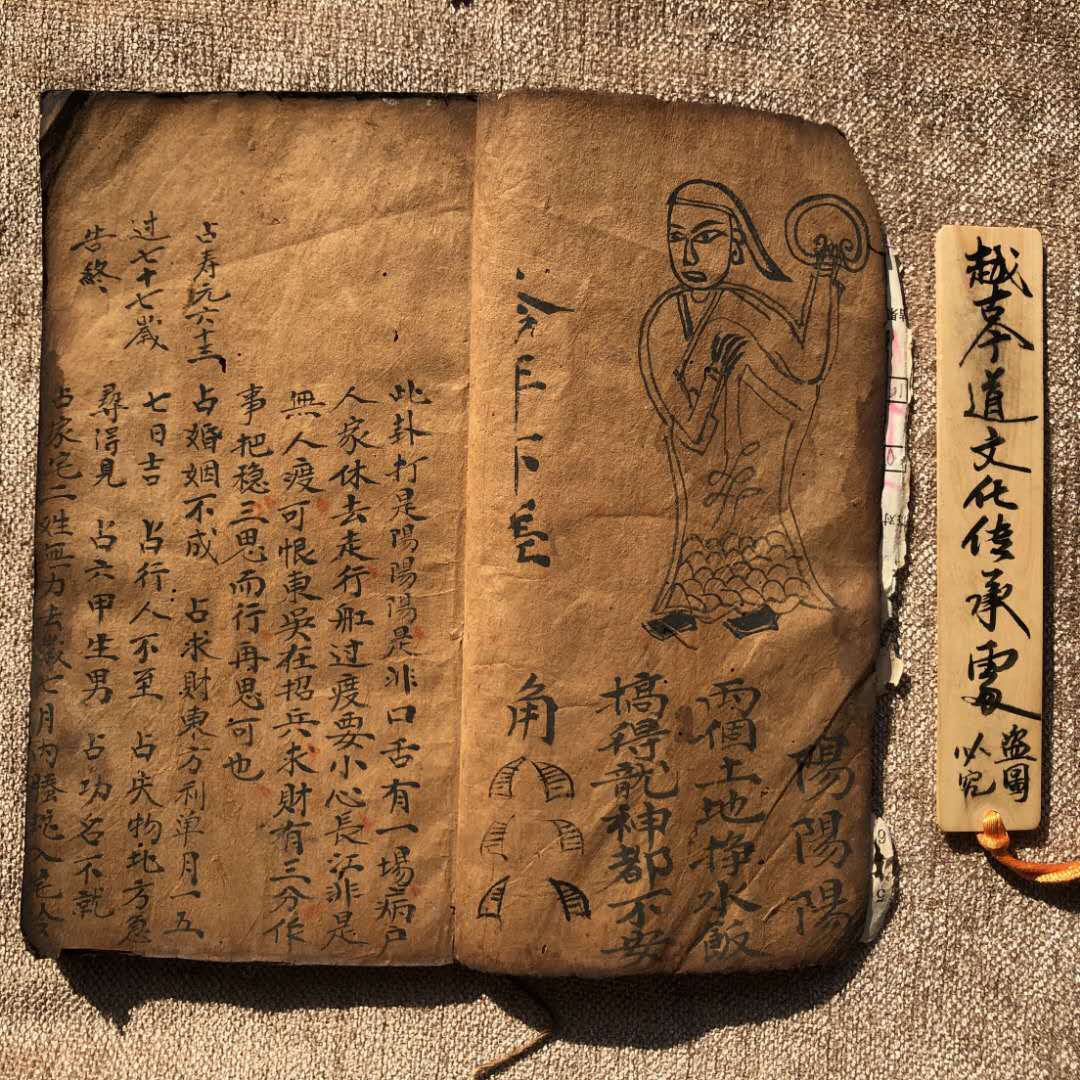 陽陽陽
兩個土地掙水飯
搞得龍神都不安
角
下
此卦打是陽陽陽是非口舌有一場病戶
人家休去走行舡过疲要小心長江非是
無人疲可恨東吳在招兵求財有三分作
事把稳三思而行再思可也
占婚姻不成 占求財東方利单月一五
七日吉 占行人不至 占失物北方急
尋得見 占六甲生男 占功名不就
占家宅二姓無力去歲七月內
占寿元六十三
过七十七歲
告終
越本道文化传承
盗圖
必究